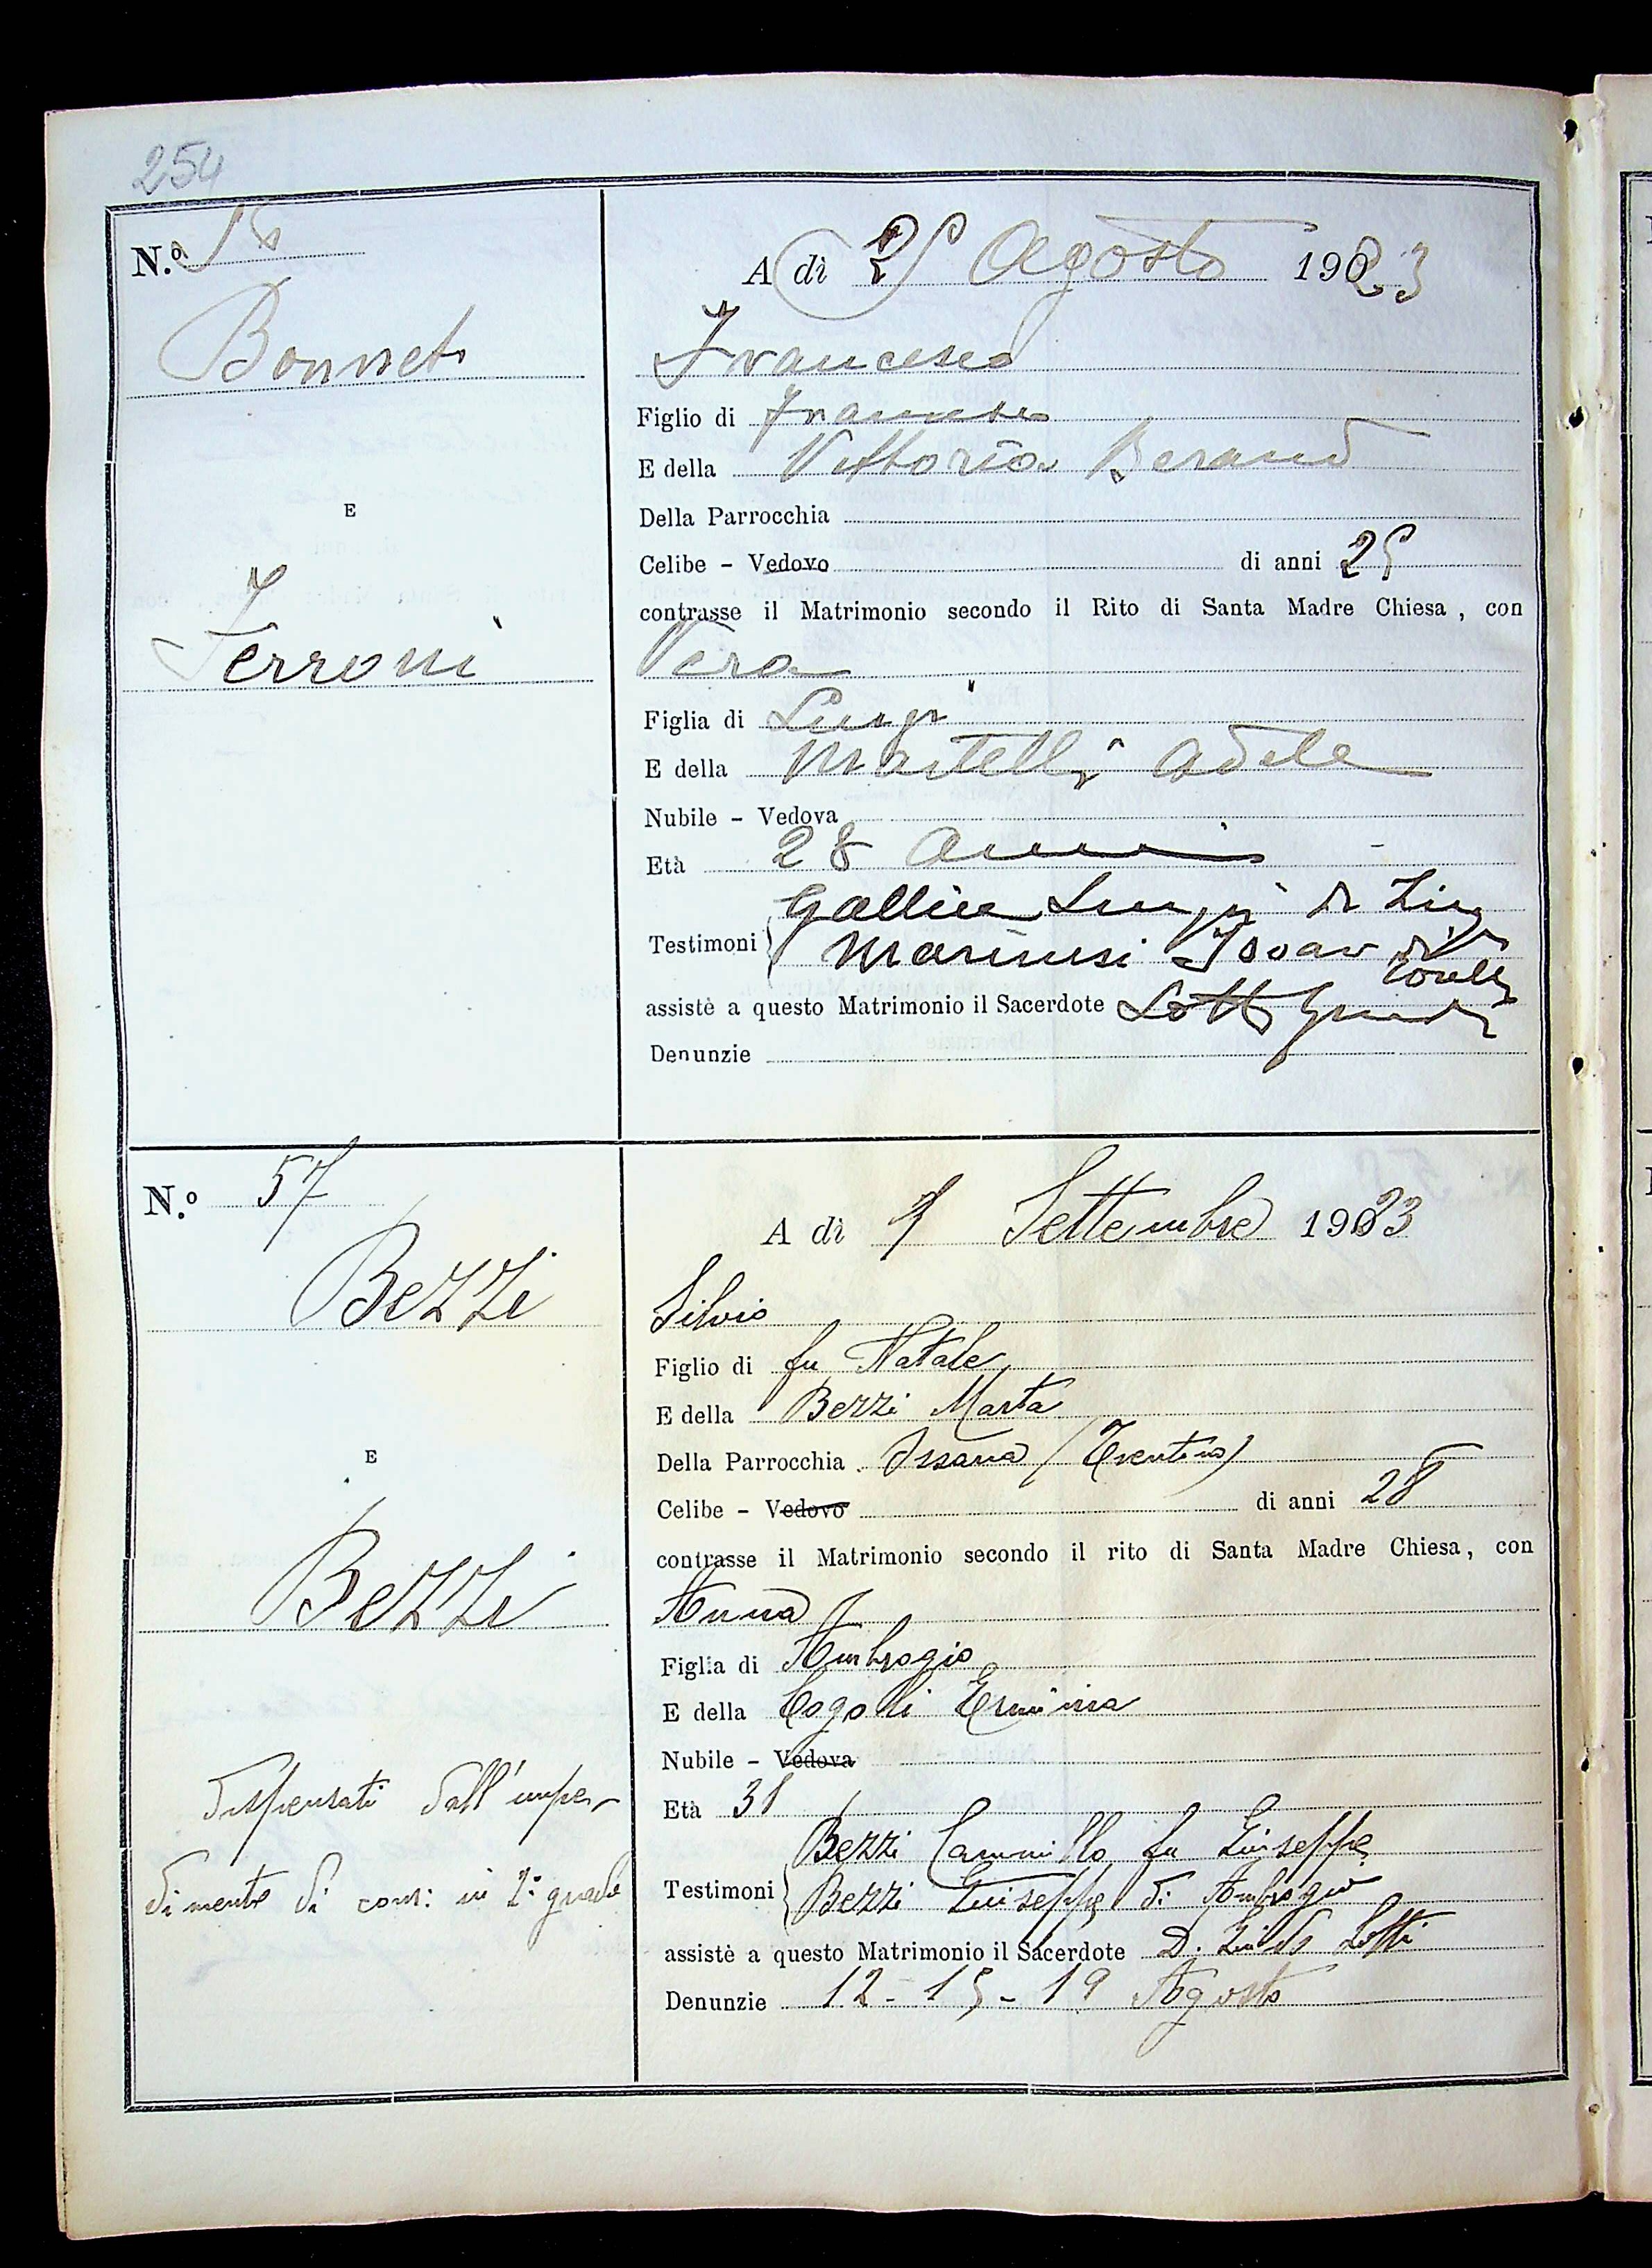 254
N.º 56
A dì 25 Agosto 1923
Bonnet
Francesco
Figlio di Francesco
E della Vittoria Beraud
E
Della Parrocchia
Celibe - Vedovo di anni 25
contrasse il Matrimonio secondo il Rito di Santa Madre Chiesa, con
Ferroni
Vera
Figlia di Luigi
E della Martelli Adele
Nubile - Vedova
Età 28 anni
Luigi di
Testimoni Marinesi
assistè a questo Matrimonio il Sacerdote Lotti Guido
Denunzie
N.º 57
A dì 1 Settembre 1923
Bezzi
Silvio
Figlio di fu Natale
E della Bezzi Marta
E
Della Parrocchia Ossana (Trentino)
Celibe - Vedovo di anni 28
contrasse il Matrimonio secondo il rito di Santa Madre Chiesa, con
Bezzi
Anna
Figlia di Ambrogio
E della Cogoli Erminia
Nubile - Vedova
Età 31
dispensati dall'impe-
dimento di cons: in 2º grado
Bezzi Cammillo fu Giuseppe
Testimoni Bezzi Giuseppe di Ambrogio
assistè a questo Matrimonio il Sacerdote D. Guido Lotti
Denunzie 12 - 15 - 19 Agosto